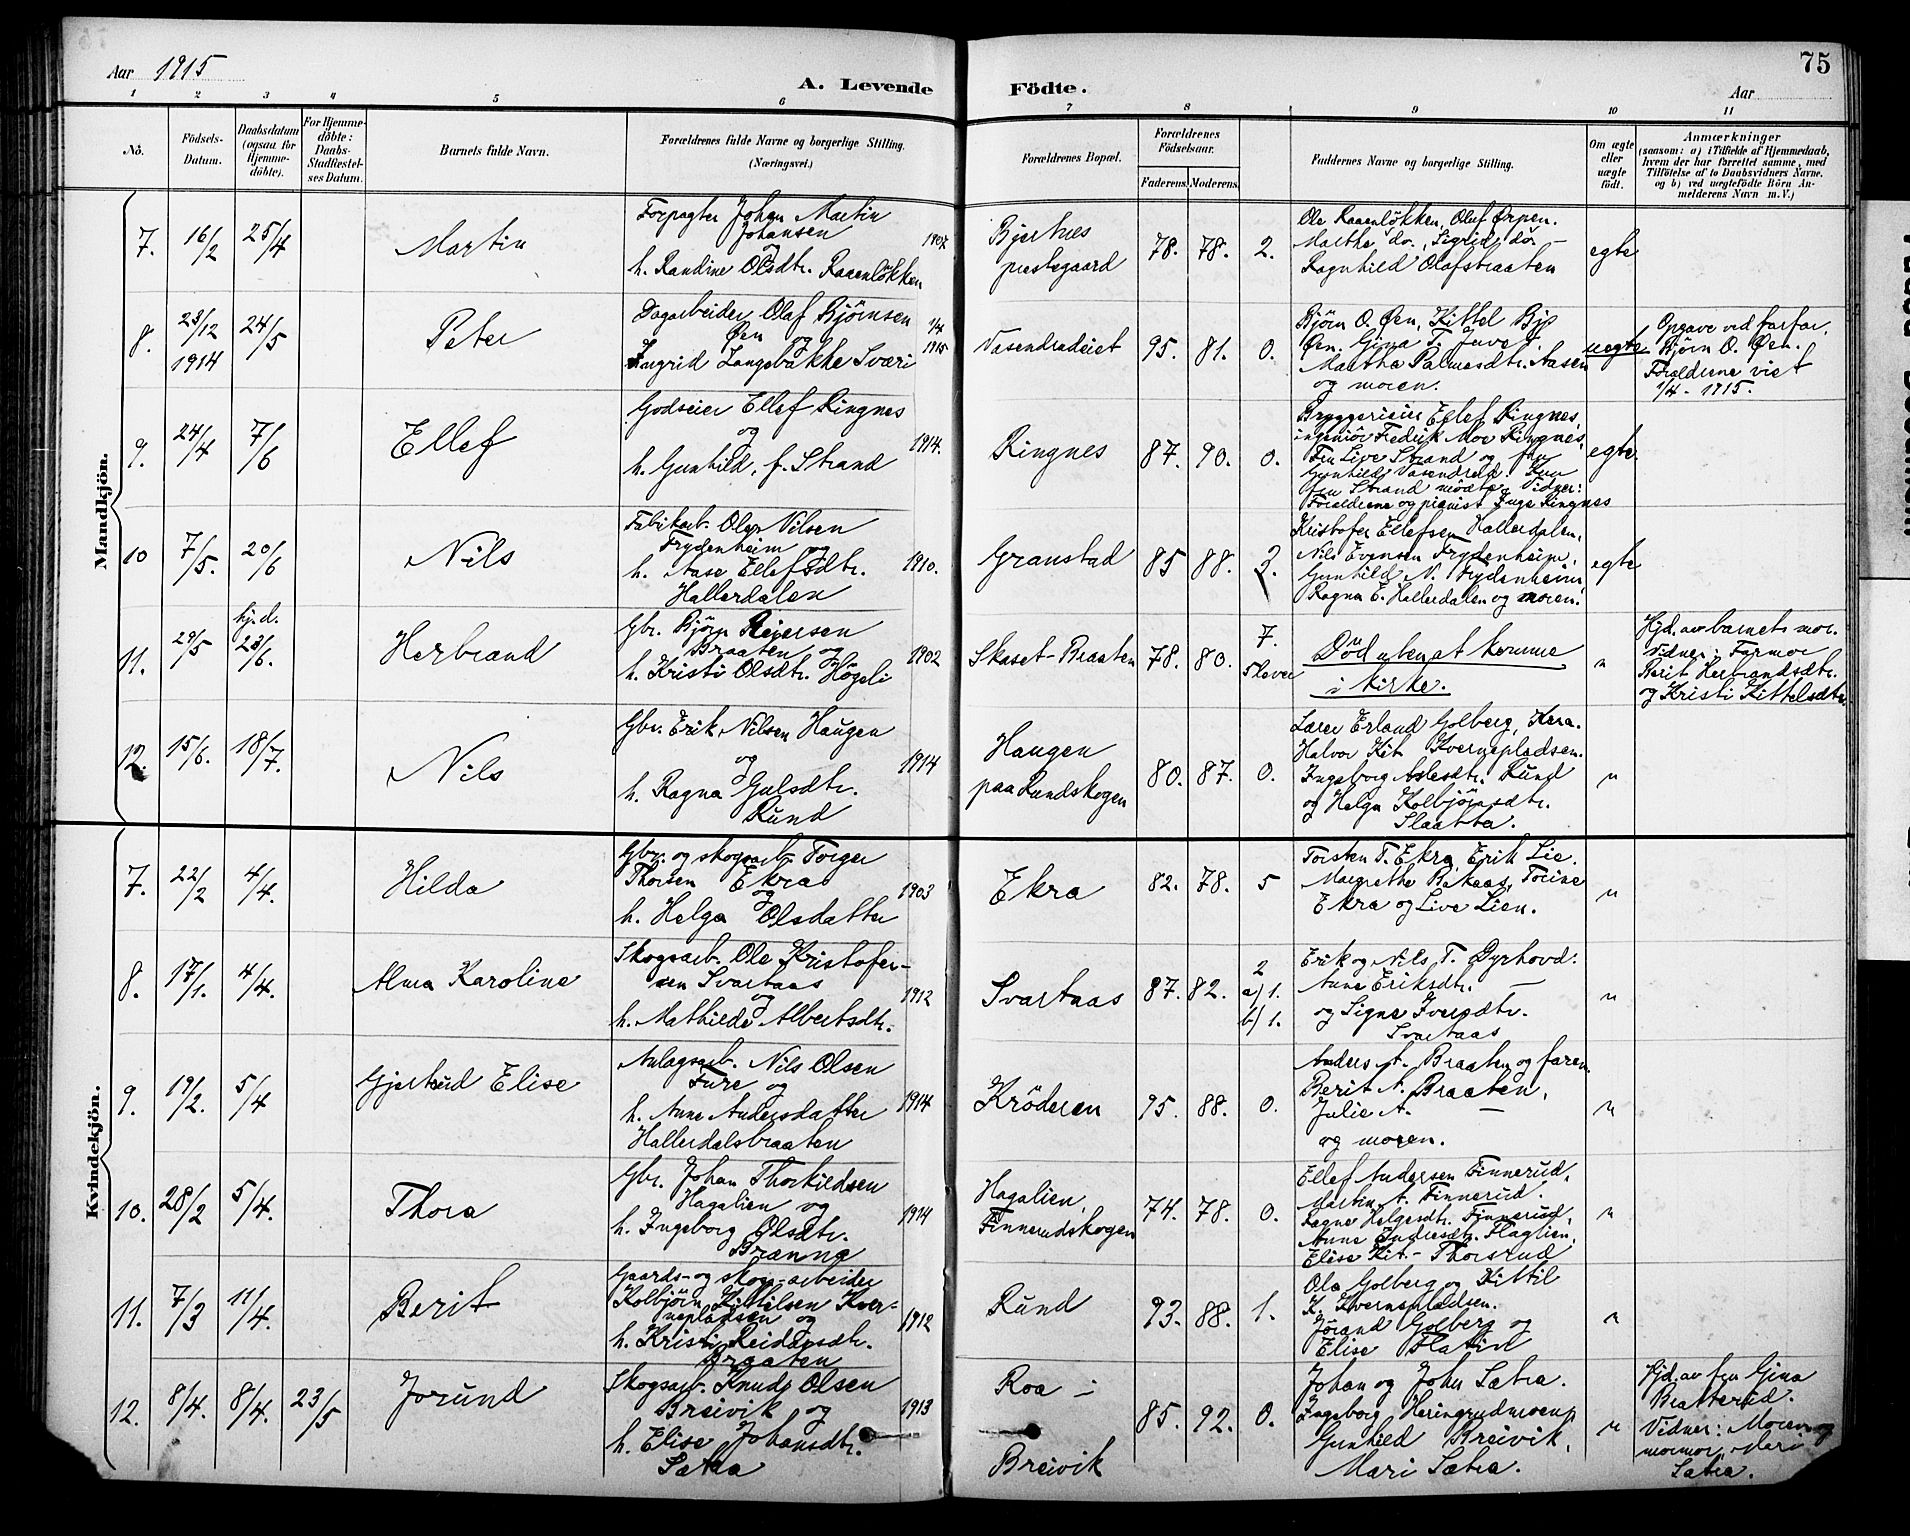 75
Aar 1915
A. Levende
Födte.
Aar
1 2 3 4 5 6 7 8 9 10 11
No.
Födsels-Datum.
Daabsdatum (ogsaa for Hjemme-döbte).
For Hjemme-döbte: Daabs-Stadfestel-ses Datum.
Barnets fulde Navn.
Forældrenes fulde Navne og borgerlige Stilling. (Næringsvei.)
Forældrenes Bopæl.
Forældrenes Födselsaar.
Faderens. Moderens.
Faddernes Navne og borgerlige Stilling.
Om ægte eller uægte födt.
Anmærkninger
(saasom: a) i Tilfælde af Hjemmedaab,
hvem der har forrettet samme, med
Tilföielse af to Daabsvidners Navne.
og b) ved uægtefödte Börn An-
melderens Navn m. V.)
Mandkjön.
7. 16/2 25/4 Martin
Forpagter Johan Martin
Johansen
og 1907
h. Randine Olsdtr. Raaenlökken
Bjertnes
prestegaard
78. 78. 2.
Ole Raaenlökken, Oluf Ørpen.
Marthe do., Sigrid do. –
Ragnhild Olafsbraaten
egte
8. 23/12 1914 24/5 Peter
Dagarbeider Olaf Björnsen
Øen og 1/4 1915
Ingrid Langebakke Sværi
Vasendradeiet 95. 81. 0.
Bjørn O. Øen, Kittel Bjø
Øen. Gina T. Juvet,
Martha Palmesdtr. Aasen
og moren.
uegte
Opgave ved farfar,
Bjørn O. Øen.
Forældrene viet
1/4 - 1915.
9. 24/4 7/6 Ellef
Godseier Ellef Ringnes
og 1914.
h. Gunhild, f. Strand
Ringnes 87. 90. 0.
Bryggerieier Ellef Ringnes,
ingeniör Fedrik Moe Ringnes,
Fru Live Strand og frk
Gunhild Vasendrud. Frn
fru Strand mödte. Vidner:
Forældrene og pianist Inga Ringnes
egte.
10 7/5. 20/6 Nils
Fabrikarb. Olaf Nilsen
Frydenheim og 1910.
h. Aase Ellefsdtr.
Hallerdalen
Granstad 85 88. 2.
Kristofer Ellefsen Hallerdalen,
Nils Evensen Frydenheim,
Gunhild N. Frydenheim,
Ragna E. Hallerdalen og moren.
egte
11. 29/5 hj.d. 23/6. Herbrand
Gbr. Bjørn Reiersen
Braaten og 1902
h. Kristi Olsdtr. Högeli
Skaset-Braaten 78. 80. 7.
5 lever
Död uten at komme
i kirke.
"
Hjd. av barnets mor.
Vidner: Farmor
Berit Herbrandsdtr.
og Kristi Kittelsdtr.
12. 15/6. 18/7. Nils
Gbr. Erik Nilsen Haugen
og 1914
h. Ragna Gulsdtr.
Rund
Haugen
paa Rundskogen
80. 87. 0.
Lærer Erland Golberg,
Halvor Kit Kvernepladsen.
Ingeborg Aslesdtr. Rund
og Helga Kolbjörnsdtr.
Slaatta.
"
Kvindekjön.
7. 22/2 4/4. Hilda
Gbr. og skogsarb. Torger
Thorsen Ekra
og 1903
h. Helga Olsdatter
Ekra 82. 78. 5
Torsten T. Ekra, Erik Lie.
Margrethe Bakaas, Torine
Ekra og Live Lien.
"
8. 17/1. 4/4. Alma Karoline
Skogsarb. Ole Kristofer-
sen Svartaas
og 1912
h. Mathilde Albertsdtr.
Svartaas 87. 82. 2
a) 1.
b) 1.
Erik og Nils T. Dyrhovd.
Anne Eriksdtr. —
og Signe Iversdtr.
Svartaas
"
9. 19/2. 5/4 Gjertrud Elise
Anlagsarb. Nils Olsen
Fure og 1914
h. Anne Andersdatter
Hallerdalsbraaten
Kröderen 95. 88. 0.
Anders A. Braaten og faren
Berit A. Braaten,
Julie A. —
og moren.
"
10. 28/2 5/4. Thora
Gbr. Johan Thorkildsen
Hagalien og 1914
h. Ingeborg Olsdtr.
Brænna
Hagalien,
Finnerudskogen
74. 78. 0.
Ellef Andersen Finnerud,
Martin A. Finnerud.
Ragne Helgesdtr. Finnerud,
Anne Endresdtr. Haglien,
Elise Kit- Thorsrud
"
11. 7/3 11/4. Berit
Gaards- og skogs-arbeider
Kolbjörn Kittilsen Kver-
nepladsen og 1912
h. Kristi Reidarsdtr.
Braaten
Rund 93. 88. 1.
Ola Golberg og Kittil
K. Kvernepladsen.
Jörand Golberg og
Elise Flatin
"
12. 8/4. 8/4. 23/5 Jorund
Skogsarb. Knud Olsen
Breivik og 1913
h. Elise Johansdtr.
Sætra
Roa i
Breivik
85. 92. 0.
Johan og John Sætra.
Ingeborg Heringrudmoen,
Gunhild Breivik,
Mari Sætra.
"
Hjd. av fru Gina
Bratterud.
Vidner: Moren og
mormor Mari
Sætra.